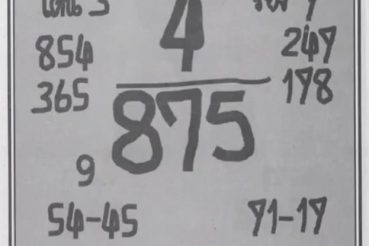 3 4 7
854 247
365 178
875
9
54-45 71-17